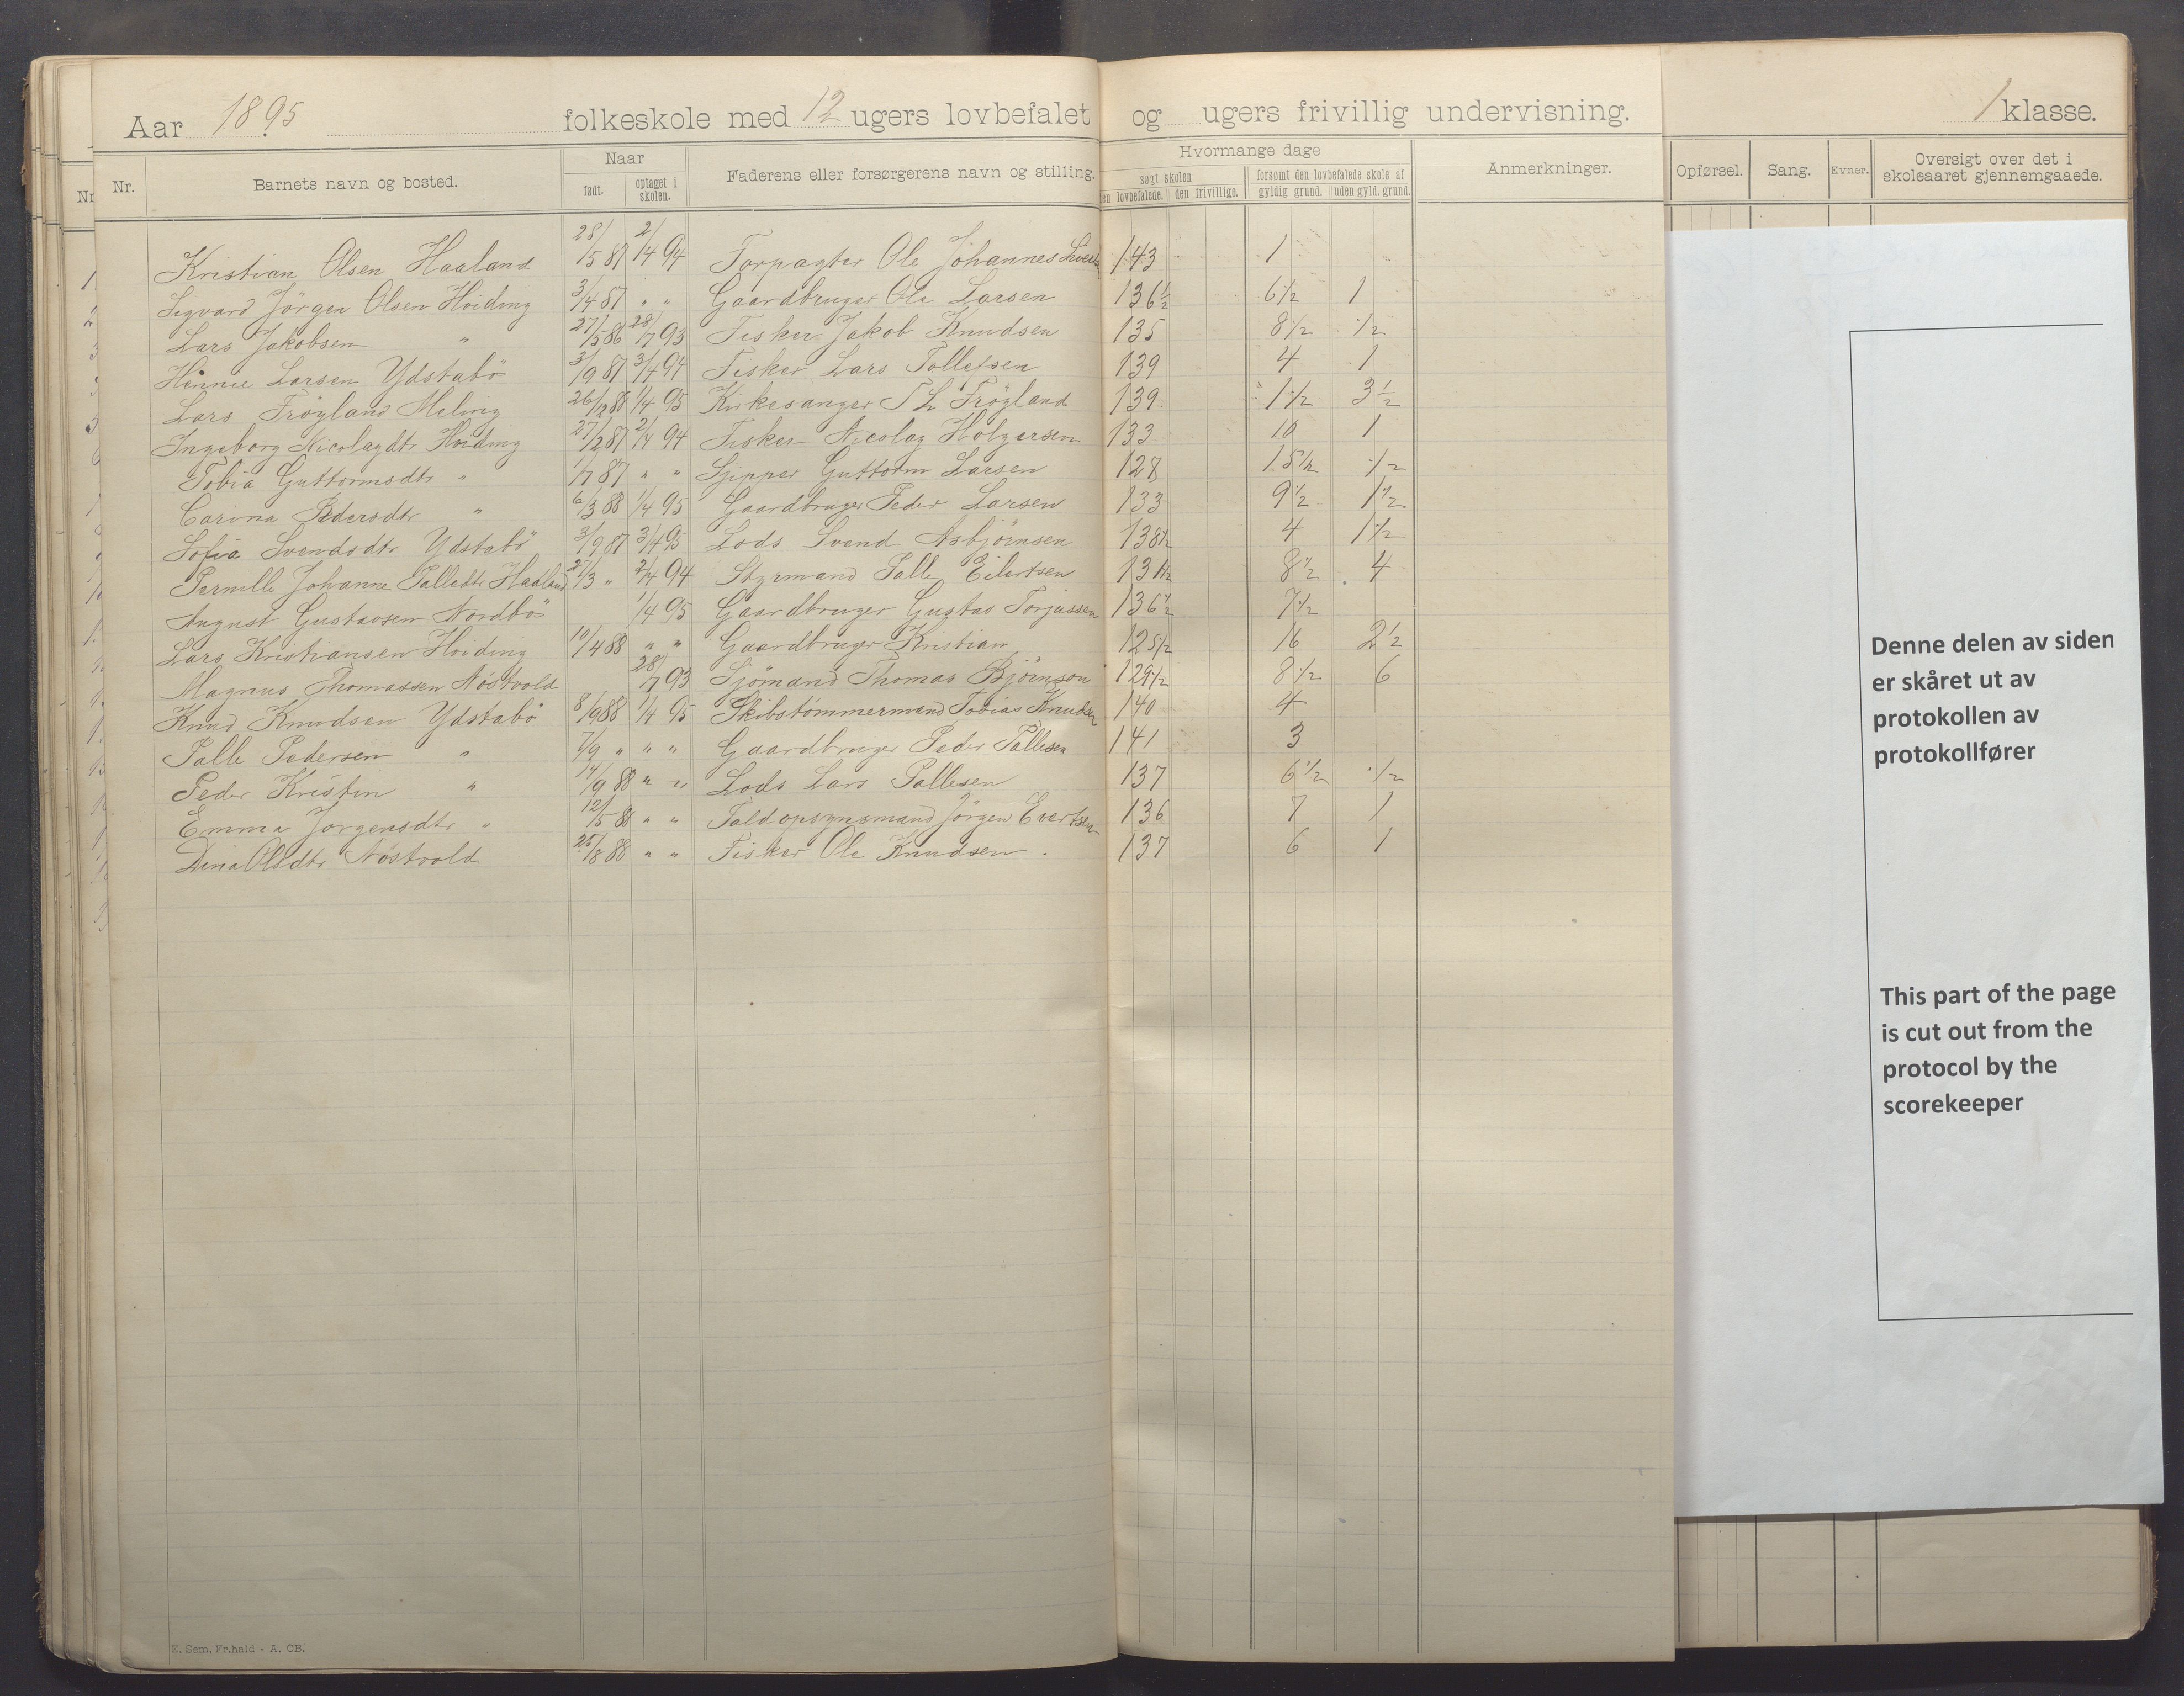 Aar 1895 folkeskole med 12 ugers lovbefalet og ugers frivillig undervisning. 1 klasse.
Nr. Barnets navn og bosted. Naar født. optaget i skolen. Faderens eller forsørgerens navn og stilling. Hvormange dage søgt skolen den lovbefalede. den frivillige. forsømt den lovbefalede skole af gyldig grund. uden gyld. grund. Anmerkninger. Opførsel. Sang. Evner. Oversigt over det i skoleaaret gjennemgaaede.
Kristian Olsen Haaland 28/5 87 2/4 94 Forpagter Ole Johannes 143 1
Sigvard Jörgen Olsen Hviding 3/4 87 " " Gaardbruger Ole Larsen 136 1/2 6 1/2 1
Lars Jakobsen " 27/5 86 28/7 93 Fisker Jakob Knudsen 135 8 1/2 1/2
Hinnie Larsen Ydstabö 3/9 87 3/4 94 Fisker Lars Tollefsen 139 4 1
Lars Fröyland Meling 26/12 88 1/4 95 Kirkesanger T L Fröyland 139 1 1/2 3 1/2
Ingeborg Nicolaydtr Hviding 27/2 87 2/4 94 Fisker Nicolay Holgersen 133 10 1
Tobia Guttormsdtr " 1/7 87 " " Sjipper Guttorm Larsen 128 15 1/2 1/2
Carina Pedersdtr " 6/3 88 1/4 95 Gaardbruger Peder Larsen 133 9 1/2 1 1/2
Sofia Svendsdtr Ydstabö 3/9 87 3/4 95 Lods Svend Asbjörnsen 138 1/2 4 1 1/2
Pernille Johanne Palledtr Haaland 27/3 " 2/4 94 Styrmand Palle Eilertsen 131 1/2 8 1/2 4
August Gustavsen Nordbö 1/4 95 Gaardbruger Gustav Torjussen 136 1/2 7 1/2
Lars Kristiansen Hviding 10/4 88 " " Gaardbruger Kristian 125 1/2 16 2 1/2
Magnus Thomassen Nöstvold 28/7 93 Sjömand Thomas Björnson 129 1/2 8 1/2 6
Knud Knudsen Ydstabö 8/9 88 1/4 95 Skibstömmermand Tobias Knudsen 140 4
Palle Pedersen " 7/9 " " " Gaardbruger Peder Pallesen 141 3
Peder Kristin " 14/9 88 " " Lods Lars Pallesen 137 6 1/2 1/2
Emma Jorgensdtr " 12/5 88 " " Toldopsynsmand Jörgen Evertsen 136 7 1
Dina Olsdtr Nöstvold 25/8 88 " " Fisker Ole Knudsen. 137 6 1
E. Sem, Fr.hald - A. CB.
Denne delen av siden
er skåret ut av
protokollen av
protokollfører
This part of the page
is cut out from the
protocol by the
scorekeeper